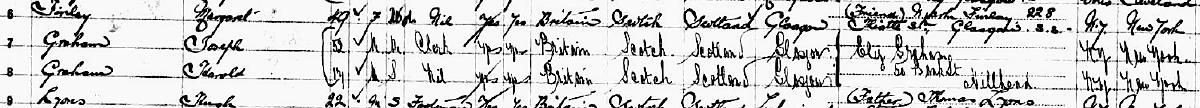 6 Finley Margaret 49 F Wd Nil Yes Yes Britain Scotch Scotland Glasgow (Friend) Mr John Finley 228 Glasgow S.S. N.Y. New York
7 Graham Joseph 53 M M Clerk yes yes Britain Scotch Scotland Glasgow Eliz Graham N.Y. New York
8 Graham Harold 17 M S Nil yes yes Britain Scotch Scotland Glasgow Hillhead N.Y. New York
9 Lyons Hugh 22 M S Yes Yes Britain Scotch (Father) Thomas Lyons New York